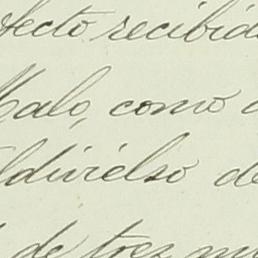 fecto recibid
Malo, como
ldivielso de
de tres